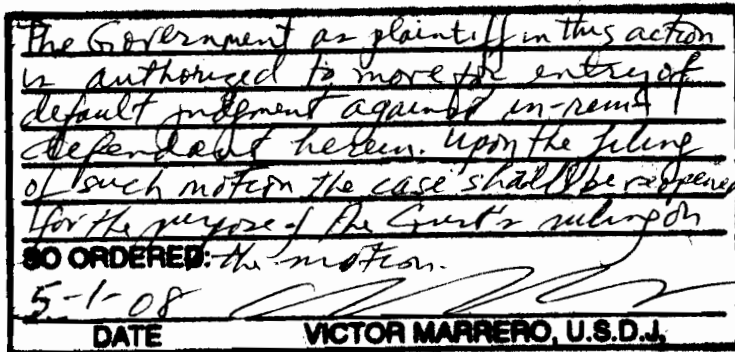 The Government as plaintiff in this action
is authorized to move for entry of
default judgment against in-rem
defendant herein. Upon the filing
of such motion the case shall be reopened
for the purpose of the Court's ruling on
SO ORDERED: the motion.
5-1-08
DATE VICTOR MARRERO, U.S.D.J.